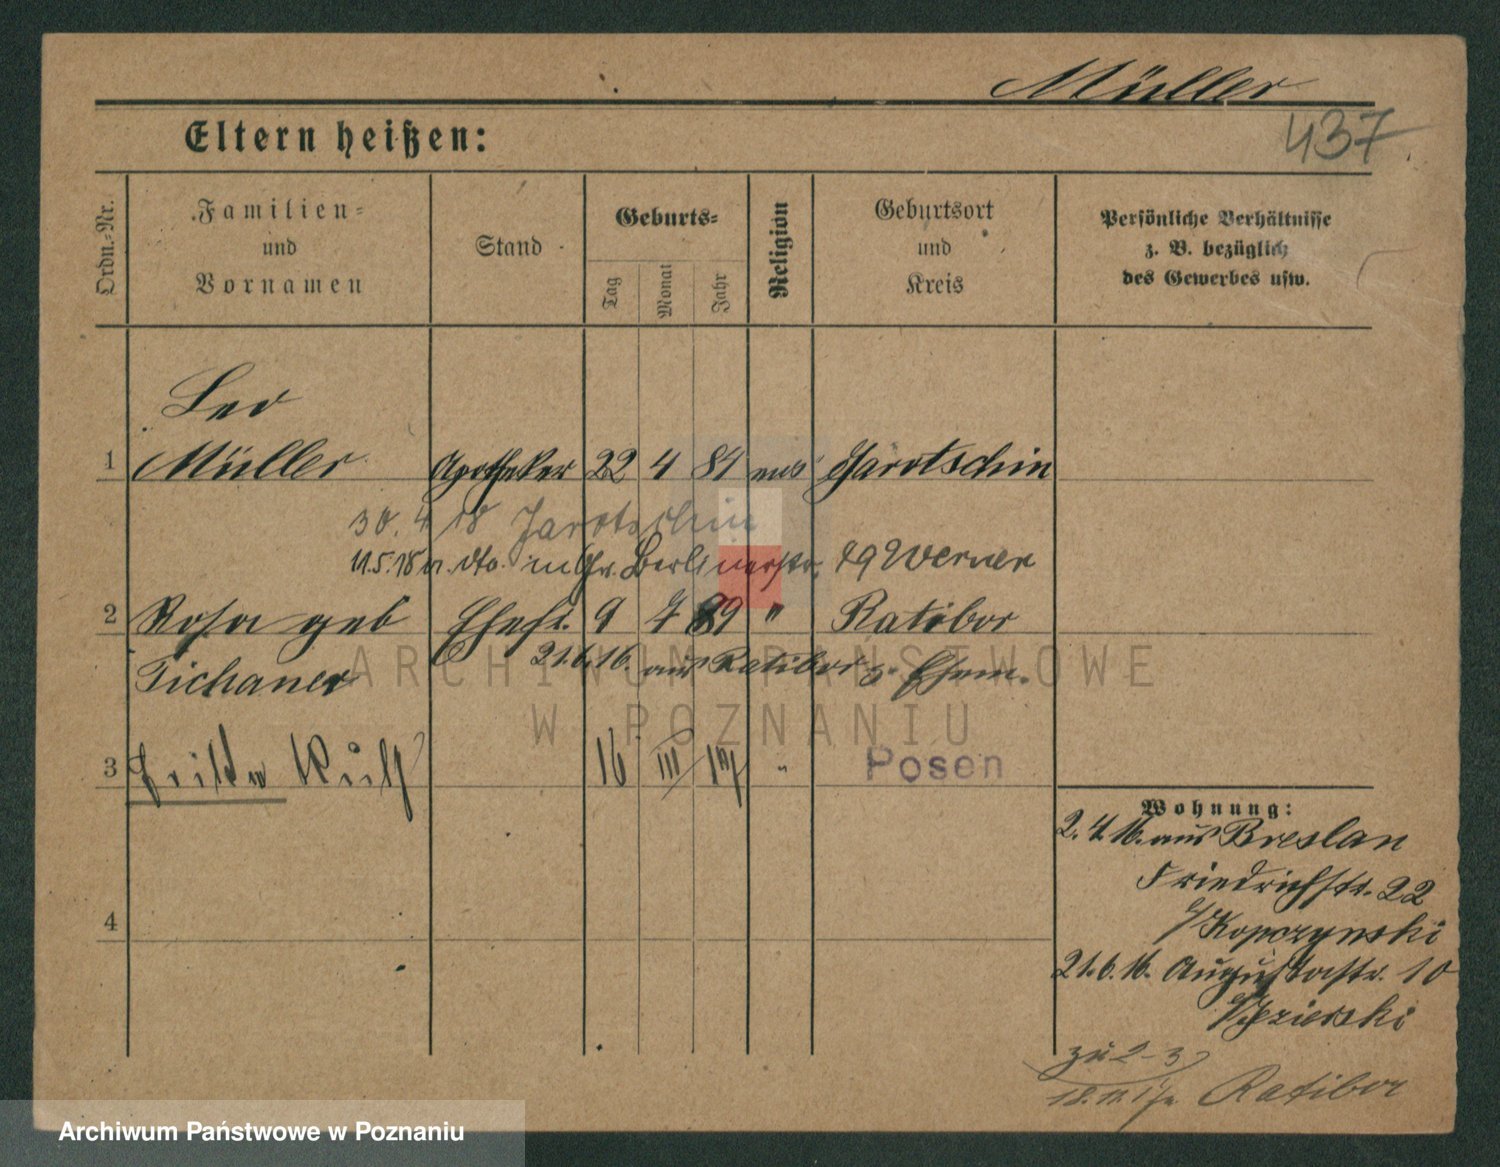 Müller
437
Eltern heißen:
Ordn.-Nr.
Familien-
und
Vornamen
Stand
Geburts-
Tag
Monat
Jahr
Religion
Geburtsort
und
Kreis
Persönliche Verhältnisse
z. B. bezüglich
des Gewerbes usw.
Leo
1 Müller Apotheker 22 4 84 mos Jarotschin
30. 4 18 Jarotschin
11.5.18 v. dto. in Gr. Berlinerstr. 79 Werner
2 Rosa geb Ehefr. 9 7 89 " Ratibor
Tichauer 21.6.16. aus Ratibor z. Ehem.
3 Ruth 16 III 17 " Posen
4
Wohnung:
2. 4. 16. aus Breslau
Friedrichstr. 22
b/Kopczynski
21.6.16. Augustastr. 10
b/Jezierski
zu 2-3
Ratibor
ARCHIWUM PAŃSTWOWE
W POZNANIU
Archiwum Państwowe w Poznaniu